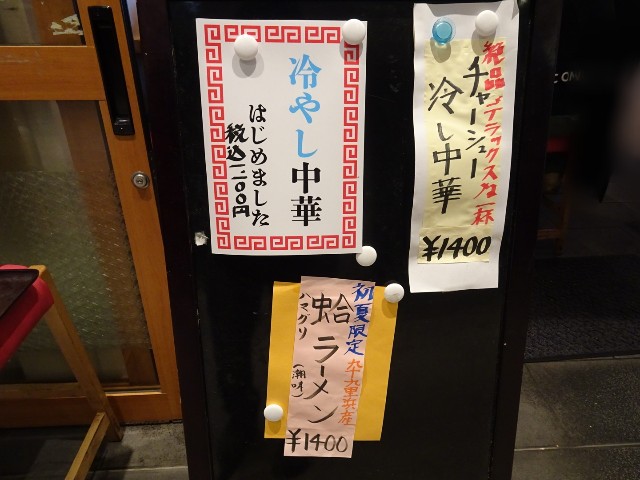 冷やし中華
はじめました
税込1,100円
絶品デラックスな一杯
チャーシュー
冷し中華
¥1400
初夏限定
九十九里浜産
蛤ラーメン
ハマグリ
(潮味)
¥1400